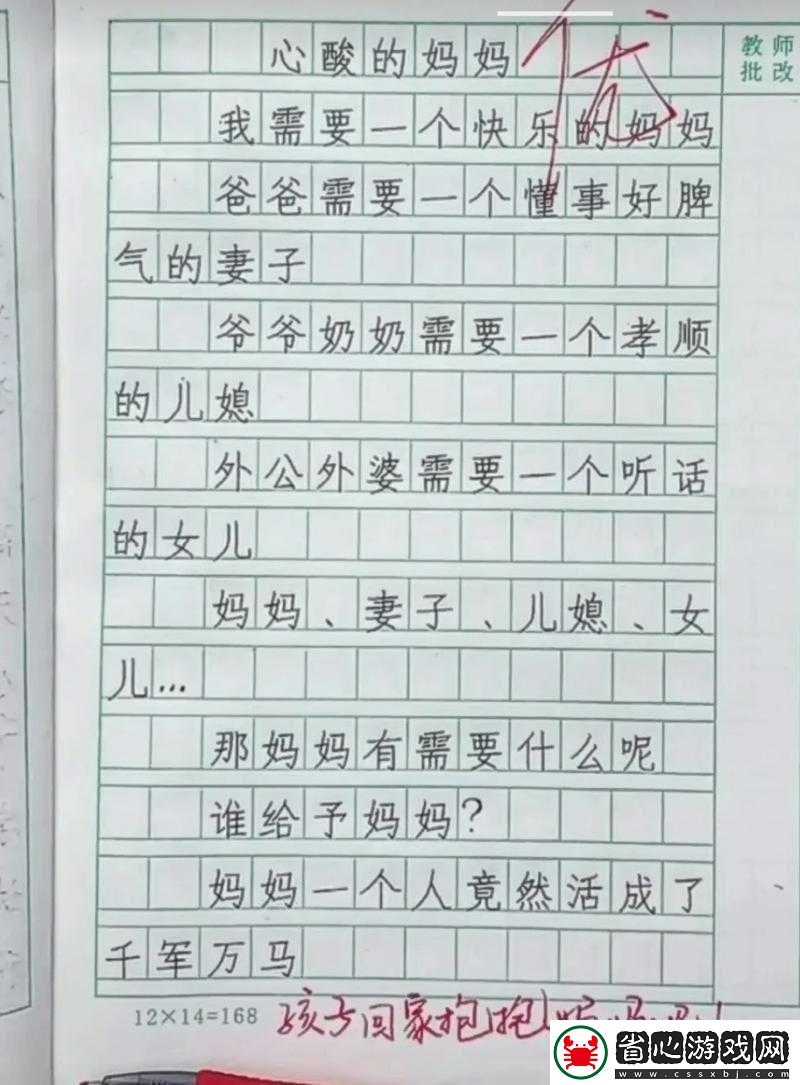 心酸的妈妈
优
教师
批改
我需要一个快乐的妈妈
爸爸需要一个懂事好脾
气的妻子
爷爷奶奶需要一个孝顺
的儿媳
外公外婆需要一个听话
的女儿
妈妈、妻子、儿媳、女
儿...
那妈妈有需要什么呢
谁给予妈妈?
妈妈一个人竟然活成了
千军万马
12×14=168
孩子回家抱抱
省心游戏网
www.cssxbj.com